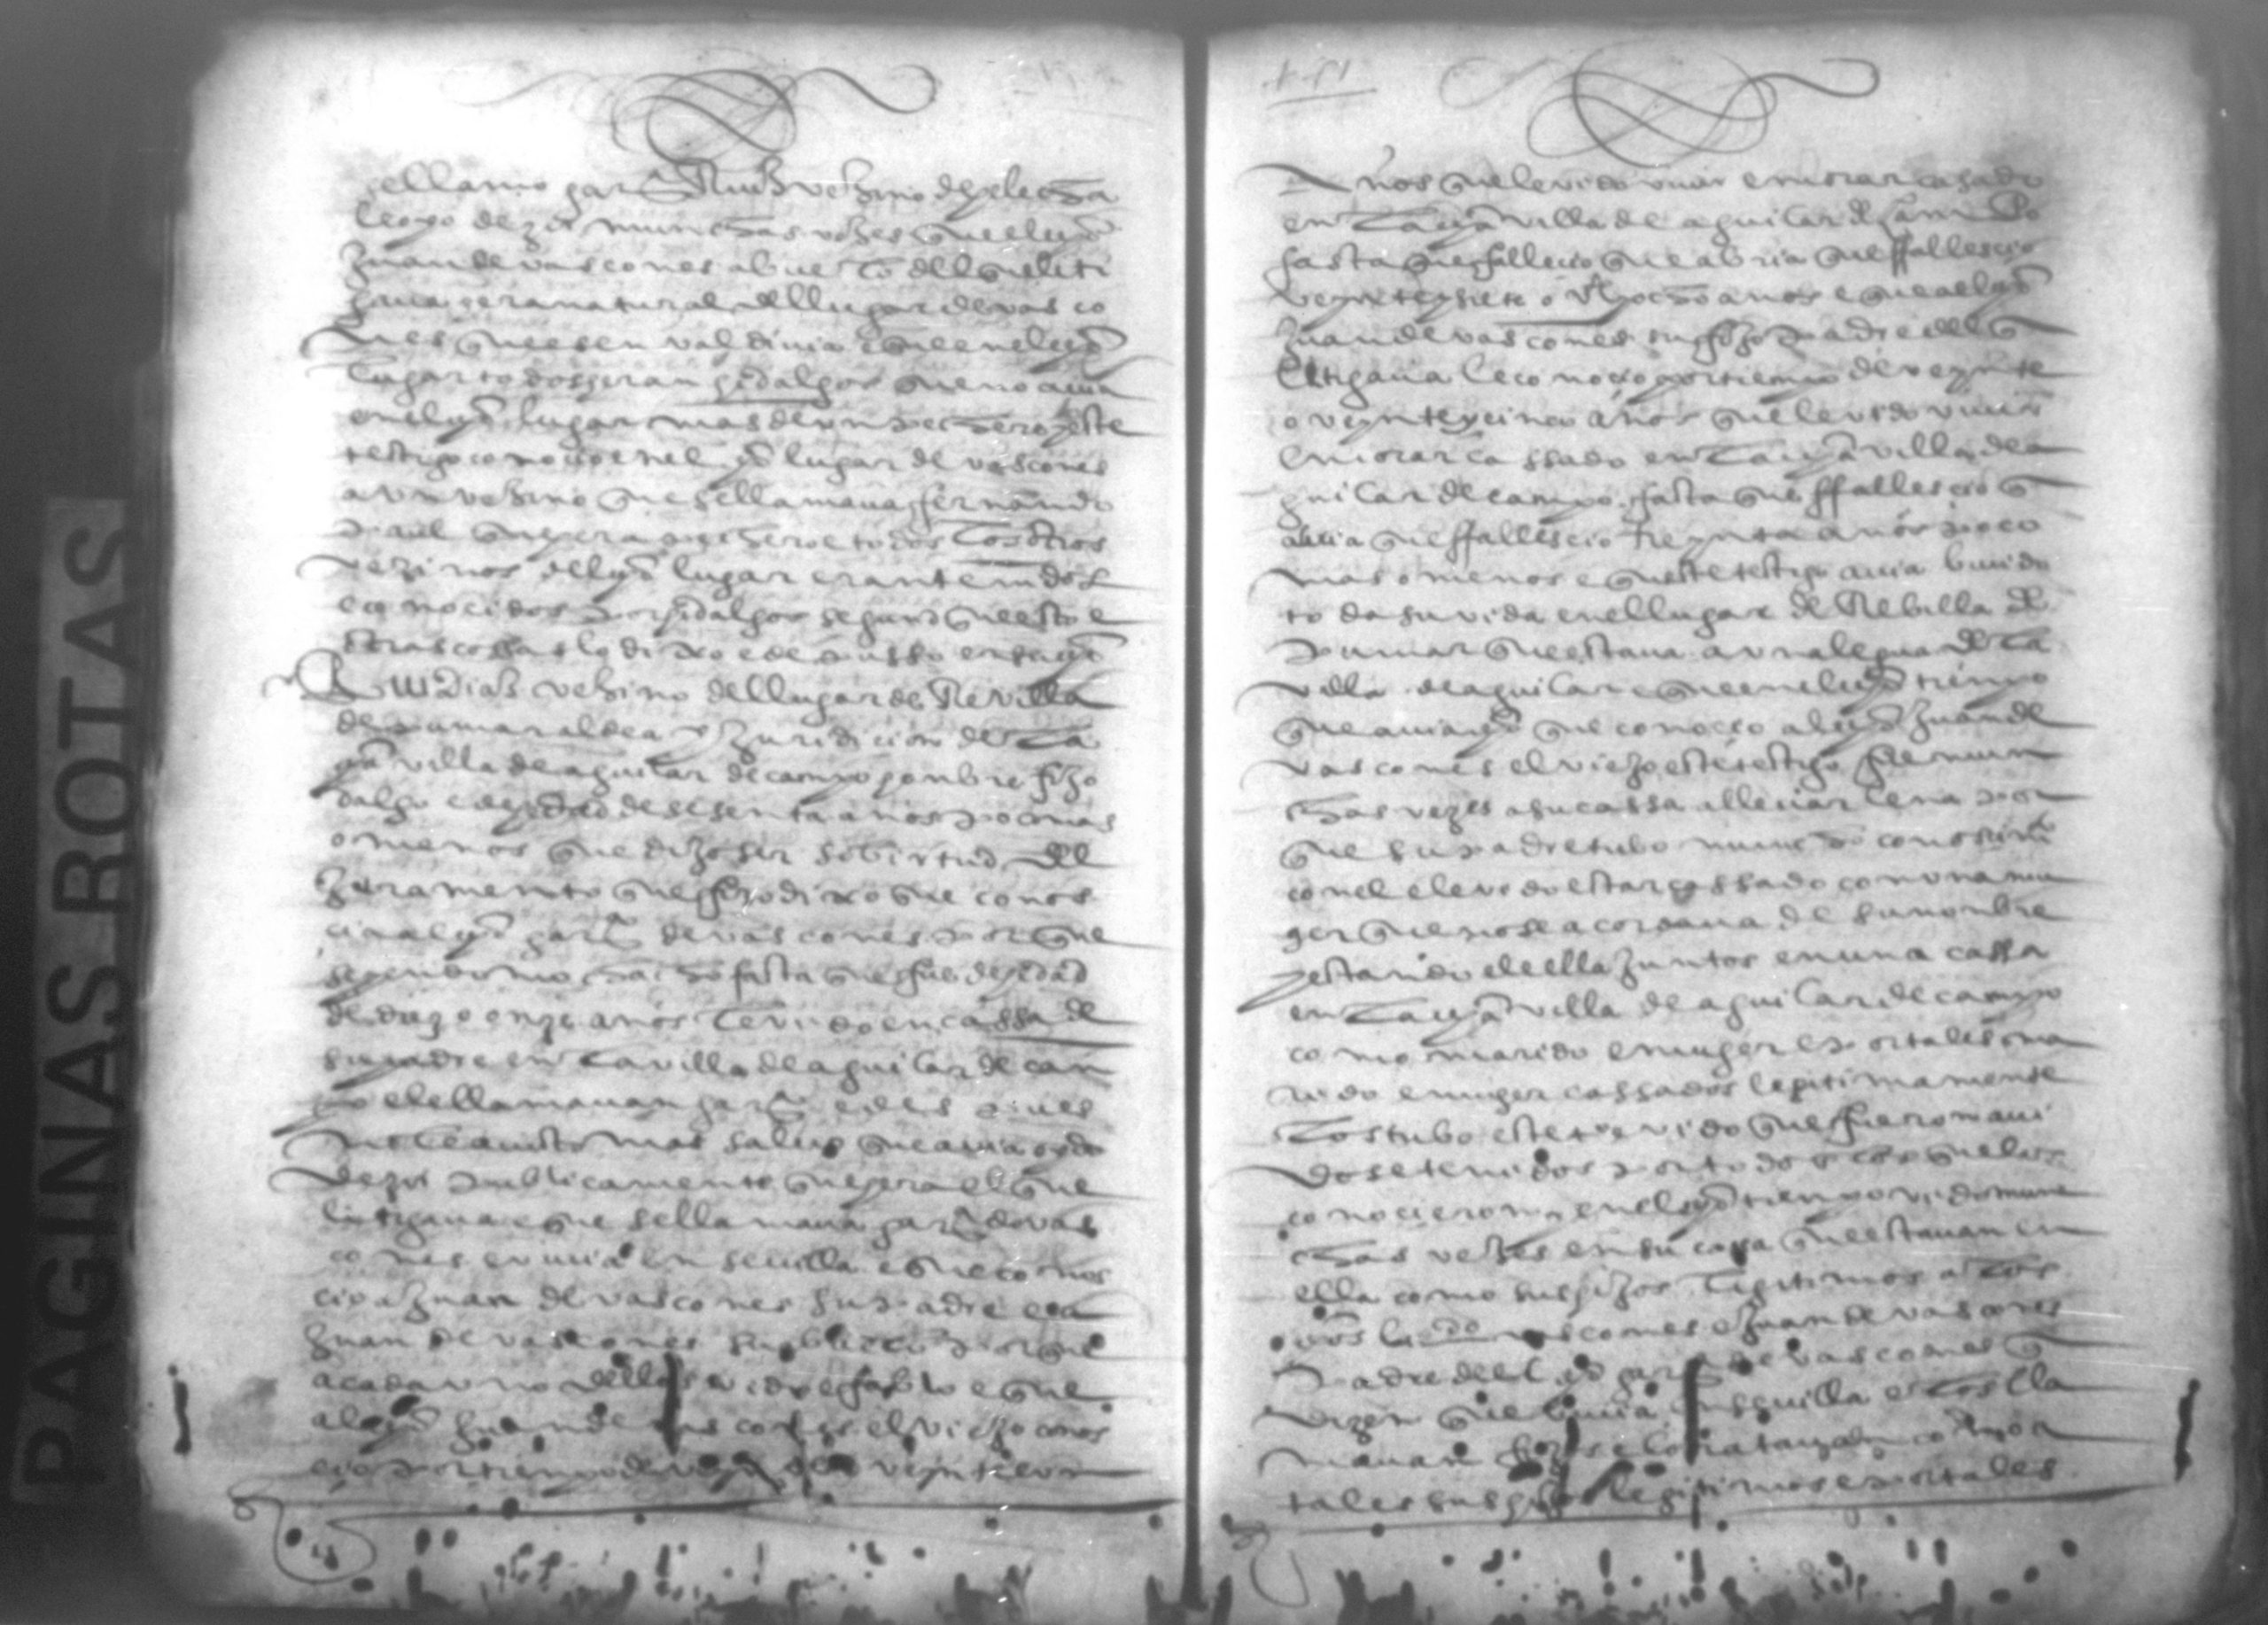 PAGINAS ROTAS
se llamo garcia Ruiz vezino de
le oyo dezir munchas vezes que el dho
Juan de vascones abuelo del que liti
gaua hera natural del lugar de vasco
nes que es en valdiuia e que en el dho
lugar todos heran hidalgos que no auia
en el dho lugar mas de vn pechero y este
testigo conocio en el dho lugar de vascones
a vn vezino que se llamaua ffernando
que hera pechero e todos los otros
vezinos del dho lugar eran tenidos
e conocidos por hidalgos segund que esto e
otras cossas lo dixo e depusso en su dho
Rui diaz vezino del lugar de Revilla
de pumar aldea y Juridicion de la
dha villa de aguilar de campo honbre hijo
dalgo e de hedad de sesenta años poco mas
o menos que dixo so virtud del
Juramento que ffizo dixo que conos
cia al dho garcia de vascones porque
siendo mochacho fasta que fue de hedad
de diez o onze años le vido en cassa de
su padre en la villa de aguilar de can
po e le llamauan garcia e des pues
no le a visto mas saluo que auia oydo
dezir publicamente que hera el que
litigaua e que se llamaua garcia de vas
cones e viuia en seuilla e que conos
cio a Juan de vascones su padre e a
Juan de vascones su abuelo porque
a cada vno dellos vido e fablo e que
al dho Juan de vascones el viejo conos
cio por tienpo de veynte o veynte e vn
años que le vido viuir e morar casado
en la dha villa de aguilar de canpo
fasta que fallecio que abria que ffallescio
veynte y siete o veynte y ocho años e que al dho
Juan de vascones su hijo padre del q
litigaua le conocio por tienpo de veynte
o veynte y cinco años que le vido viuir
e morar cassado en la dha villa de a
guilar de campo fasta que ffallescio q
abria que ffallescio treynta años poco
mas o menos e queste testigo auia biuido
toda su vida en el lugar de Rebilla de
pumar que estaua a vna legua de la
villa de aguilar e que en el dho tienpo
que auia dho que conocio al dho Juan de
vascones el viejo este testigo fue mun
chas vezes a su cassa a lleuar lena por
que su padre tubo muncho conoscimio
con el e le vido estar cassado con vna mu
ger que no se acordaua de su nombre
y estando el e ella Juntos en una cassa
en la dha villa de aguilar de campo
como marido e muger e por tales ma
rido e muger cassados legitimamente
los tubo este to e vido que fueron aui
dos e tenidos por todos los que los
conocieron e en el dho tienpo vido mun
chas vezes en su casa que estauan en
ella como sus hijos legitimos a los
dhos lido vascones e Juan de vascones
padre del dho garcia de vascones q
dizen que biuia en seuilla e los lla
mauan hijos e los tratauan como a
tales sus hijos legitimos e por tales